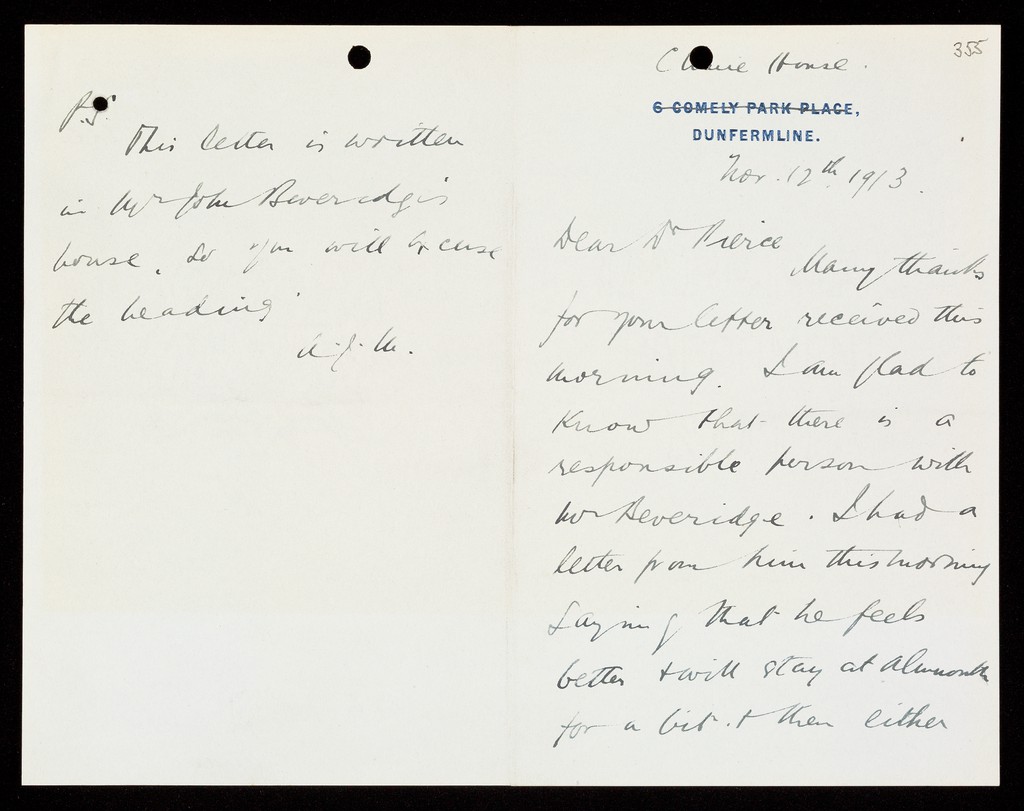 P.S.
This letter is written
in Mr John Beveridge's
house, so you will excuse
the heading
355
House.
6 COMELY PARK PLACE,
DUNFERMLINE.
Nov. 12th 1913.
Dear Dr Pierce
Many thanks
for your letter received this
morning. I am glad to
know that there is a
responsible person with
Mr Beveridge. I had a
letter from him this morning
saying that he feels
better & will stay at Alnmouth
for a bit. & then either